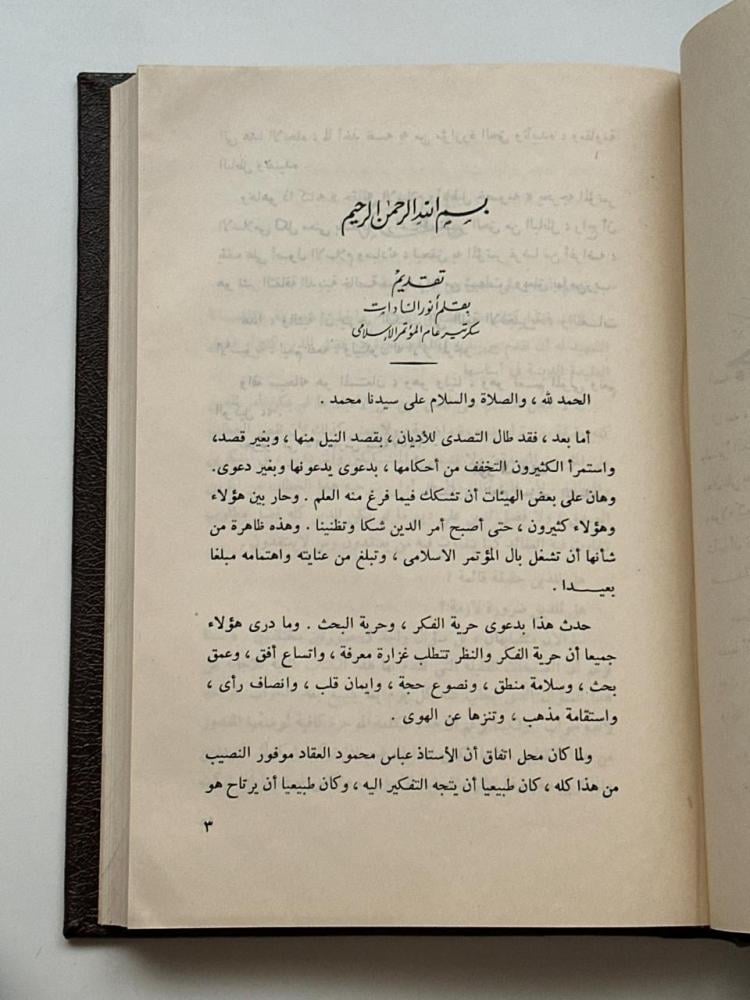 بسم الله الرحمن الرحيم
تقديم
بقلم أنور السادات
سكرتير عام المؤتمر الإسلامى
الحمد لله ، والصلاة والسلام على سيدنا محمد .
أما بعد ، فقد طال التصدى للأديان ، بقصد النيل منها ، وبغير قصد،
واستمرأ الكثيرون التخفف من أحكامها ، بدعوى يدعونها وبغير دعوى.
وهان على بعض الهيئات أن تشكك فيما فرغ منه العلم . وحار بين هؤلاء
وهؤلاء كثيرون ، حتى أصبح أمر الدين شكا وتظنينا . وهذه ظاهرة من
شأنها أن تشغل بال المؤتمر الاسلامى ، وتبلغ من عنايته واهتمامه مبلغا
بعيـــدا .
حدث هذا بدعوى حرية الفكر ، وحرية البحث . وما درى هؤلاء
جميعا أن حرية الفكر والنظر تتطلب غزارة معرفة ، واتساع أفق ، وعمق
بحث ، وسلامة منطق ، ونصوع حجة ، وايمان قلب ، وانصاف رأى ،
واستقامة مذهب ، وتنزها عن الهوى .
ولما كان محل اتفاق أن الأستاذ عباس محمود العقاد موفور النصيب
من هذا كله ، كان طبيعيا أن يتجه التفكير اليه ، وكان طبيعيا أن يرتاح هو
٣